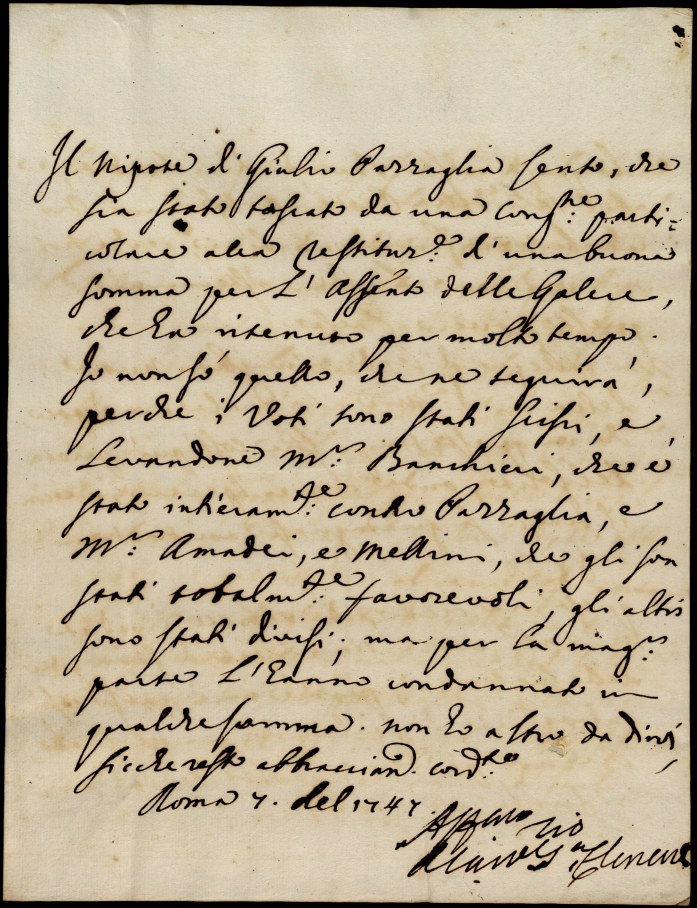 Il Nipote di Giulio Pazzaglia sento, che
sia stato tassato da una Cong.ne parti=
colare alla restituz.e d'una buona
somma per L'Assento delle Galere,
che ha ritenuto per molto tempo.
Io non só quello, che ne seguirá,
perche i Voti sono stati scissi, e
Levandone M.r Banchieri, che é
stato intieram.te contro Pazzaglia, e
M.r Amadei, e Mellini, che gli son
stati totalm.te favorevoli, gli altri
sono stati divisi; ma per la mag.r
parte L'hanno condannato in
qualche somma. non ho altro da dirvi,
sicche resto abbracciand. cord.te
Roma 7. del 1747
Aff.mo Zio